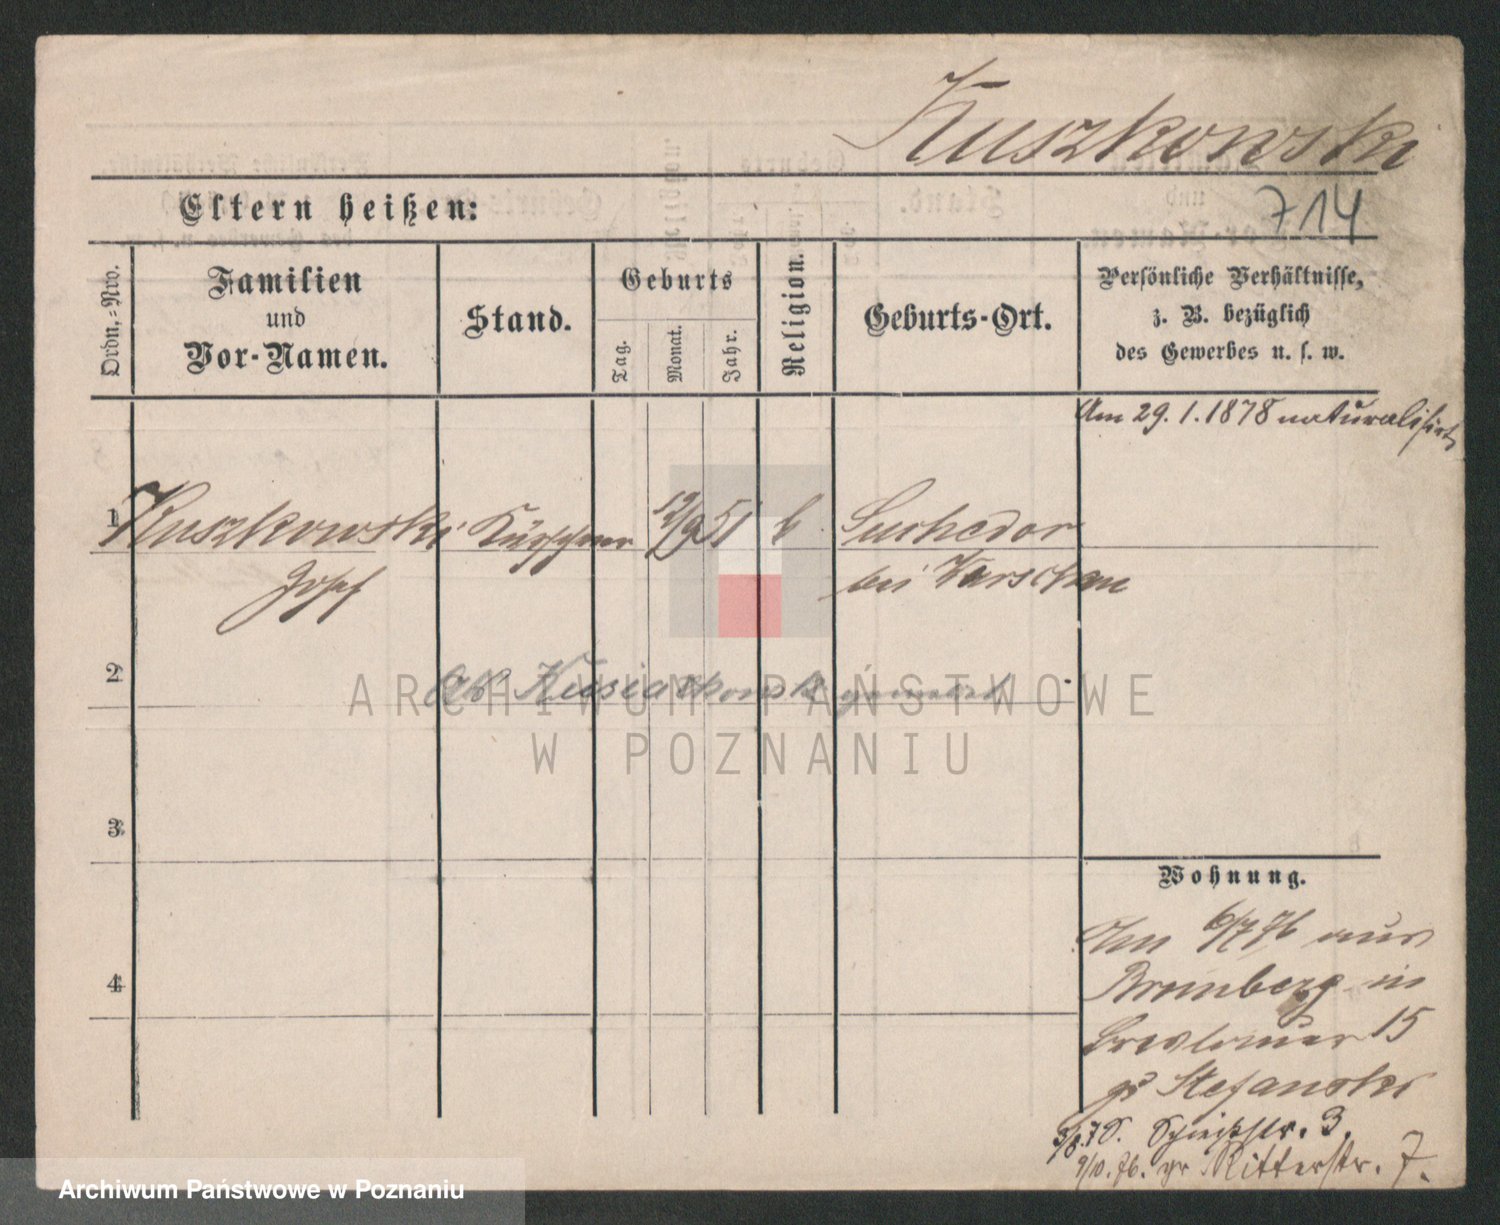 Kuszkowski
714
Eltern heißen:
Ordn.-Nro.
Familien
und
Vor-Namen.
Stand.
Geburts
Tag.
Monat.
Jahr.
Religion.
Geburts-Ort.
Persönliche Verhältnisse,
z. B. bezüglich
des Gewerbes u. s. w.
Am 29.1.1878 naturalisirt
1 Kuszkowski Kürschner 12/9 51 k Suchedor
Josef bei Warschau
2
Als Kusiatkowski gemeldet
3
4
Wohnung.
Am 6/7 76 aus
Bromberg in
Breslauer 15
Stefanski
Schießstr. 3.
9/10. 76. gr Ritterstr. 7.
ARCHIWUM PAŃSTWOWE
W POZNANIU
Archiwum Państwowe w Poznaniu